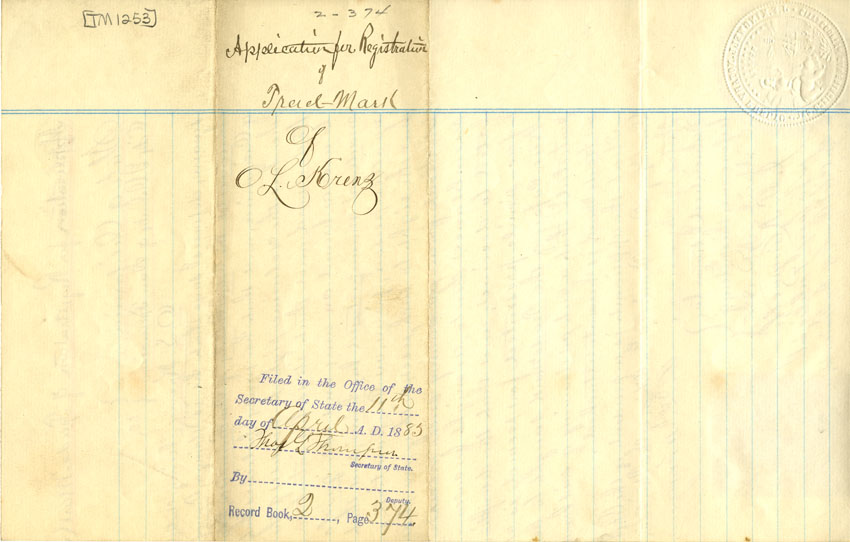 [TM1253]
2-374
Application for Registration
of
Trad-Mark
of
O L. Krenz
Filed in the Office of the
Secretary of State the 11th
day of April A. D. 1883
Thos L Thompson
Secretary of State.
By
Deputy.
Record Book, 2, Page 374